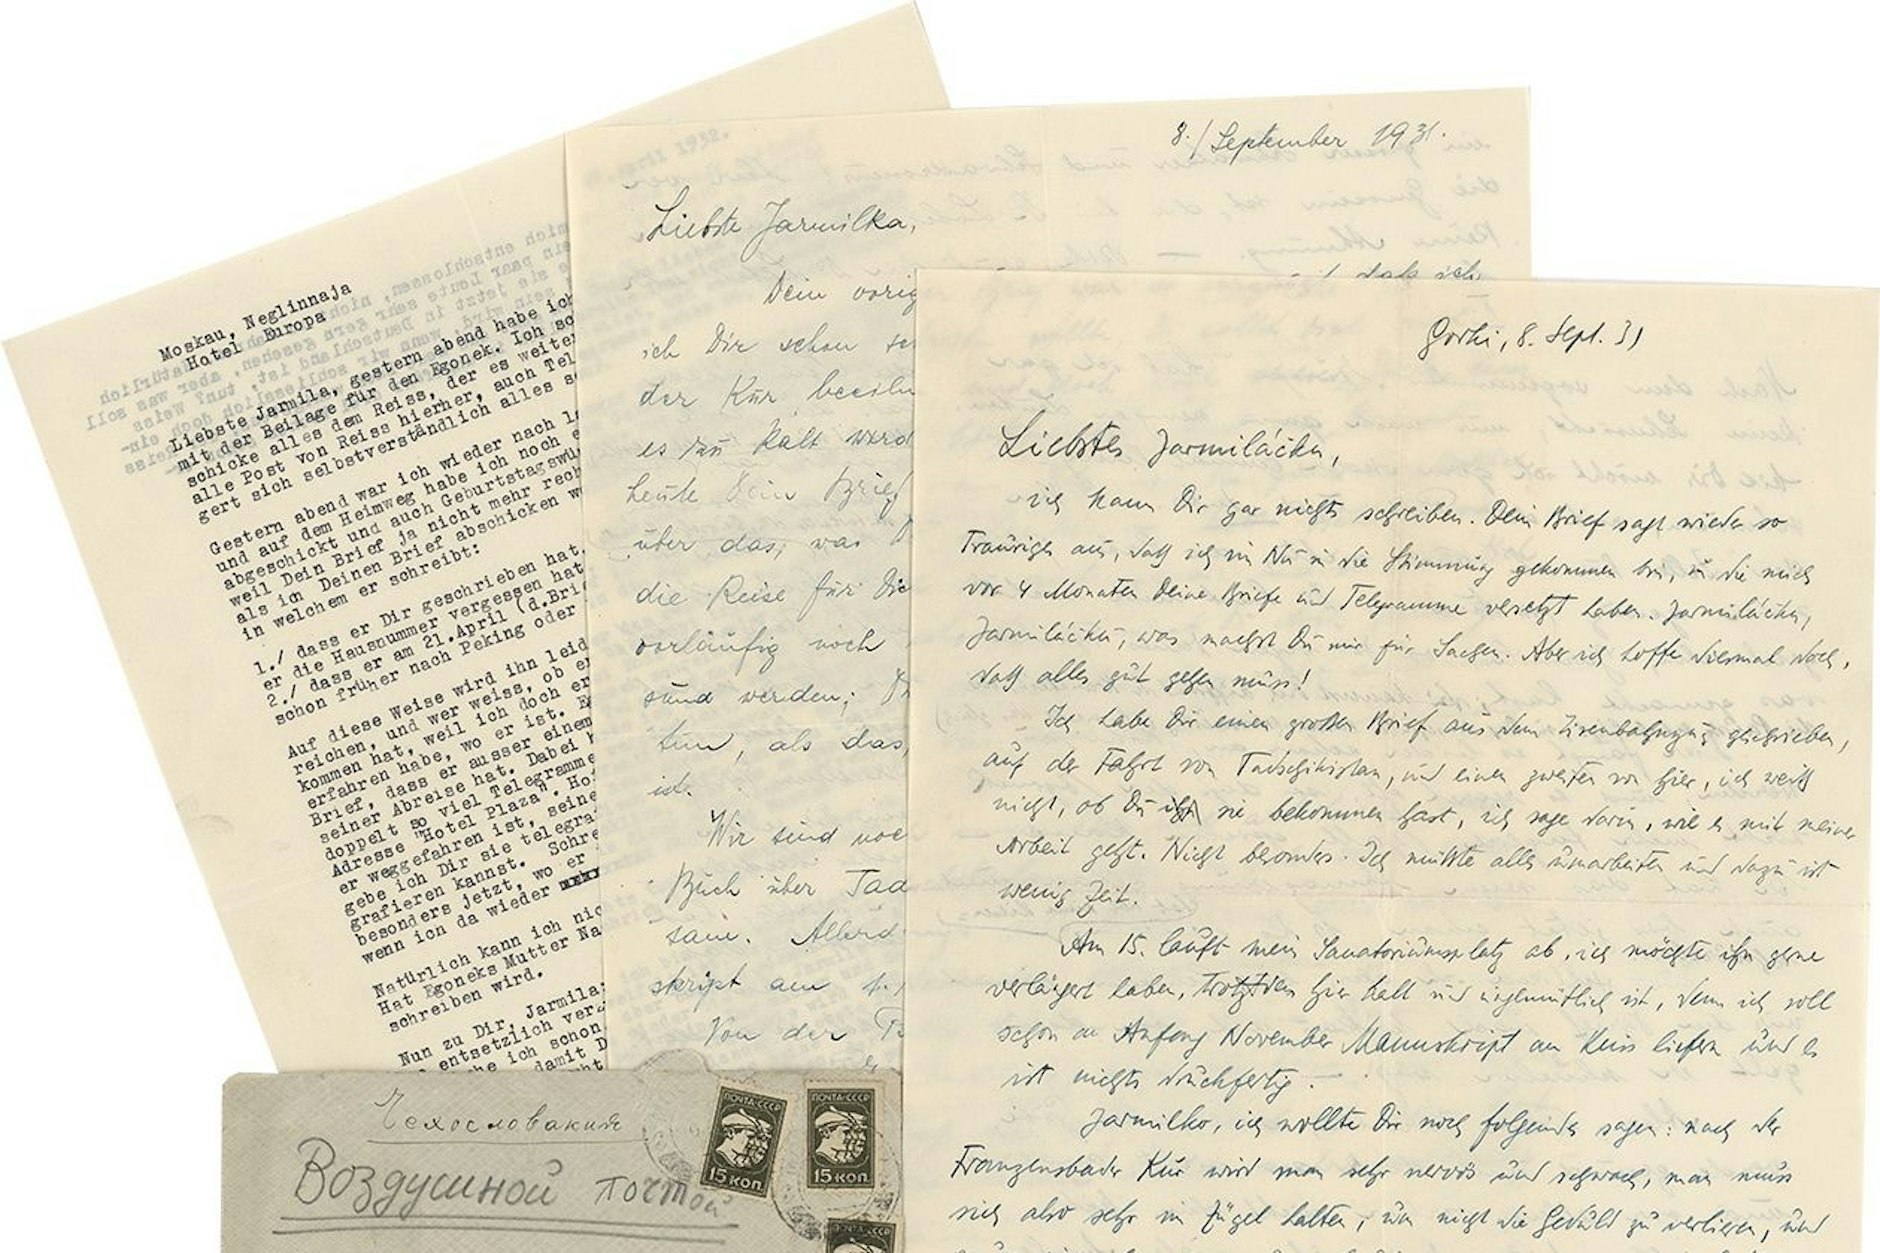 Moskau, Neglinnaja
Hotel Europa
Liebste Jarmila, gestern abend habe ich
mit der Beilage für den Egonek. Ich sc
schicke alles dem Reiss, der es weiter
alle Post von Reiss hierher, auch Tel
gert sich selbstverständlich alles s
Gestern abend war ich wieder nach l
und auf dem Heimweg habe ich noch e
abgeschickt und auch Geburtstagswü
weil Dein Brief ja nicht mehr rech
als ich Deinen Brief abschicken w
in welchem er schreibt:
1./ dass er Dir geschrieben hat,
er die Hausnummer vergessen hat
2./ dass er am 21.April (d.Bri
schon früher nach Peking oder
Auf diese Weise wird ihn leid
reichen, und wer weiss, ob er
kommen hat, weil ich doch er
erfahren habe, wo er ist. E
Brief, dass er ausser einem
seiner Abreise hat. Dabei
doppelt so viel Telegramme
Adresse "Hotel Plaza". Ho
er weggefahren ist, seine
gebe ich Dir sie telegra
grafieren kannst. Schre
besonders jetzt, wo er
wenn ich da wieder
Natürlich kann ich nic
Hat Egoneks Mutter Na
schreiben wird.
Nun zu Dir, Jarmila:
entsetzlich ver
he ich schon
damit D
8./September 1931.
Liebste Jarmilka,
Dein vorig
ich Dir schon
der Kur beeil
es zu kalt werd
heute Dein Brief
über das, was D
die Reise für Die
vorläufig noch
sund werden; D
tun, als das,
ich
Wir sind noc
Buch über Tad
sam. Allerd
skript am 1.
Von der
daß ich
Gorki, 8. Sept. 31
Liebstes Jarmiláčku,
ich kann Dir gar nichts schreiben. Dein Brief sagt wieder so
Trauriges aus, daß ich im Nu in die Stimmung gekommen bin, in die mich
vor 4 Monaten Deine Briefe und Telegramme versetzt haben. Jarmiláčku,
Jarmiláčku, was machst Du mir für Sachen. Aber ich hoffe diesmal doch,
daß alles gut gehen muss!
Ich habe Dir einen großen Brief aus dem Eisenbahnzug geschrieben,
auf der Fahrt von Tadschikistan, und einen zweiten von hier, ich weiß
nicht, ob Du sie bekommen hast, ich sage darin, wie es mit meiner
Arbeit geht. Nicht besonders. Ich müßte alles umarbeiten und dazu ist
wenig Zeit.
Am 15. läuft mein Sanatoriumsplatz ab, ich möchte ihn gerne
verlängert haben, trotzdem hier kalt und ungemütlich ist, denn ich soll
schon am Anfang November Manuskript an Reiss liefern und es
ist nichts druckfertig.
Jarmilko, ich wollte Dir noch folgendes sagen: nach der
Franzensbader Kur wird man sehr nervös und schwach, man muss
sich also sehr im Zügel halten, um nicht die Geduld zu verlieren, und
Чехословакия
Воздушной почтой
ПОЧТА·СССР
15 КОП.
ПОЧТА·СССР
15 КОП.
ПОЧТА·СССР